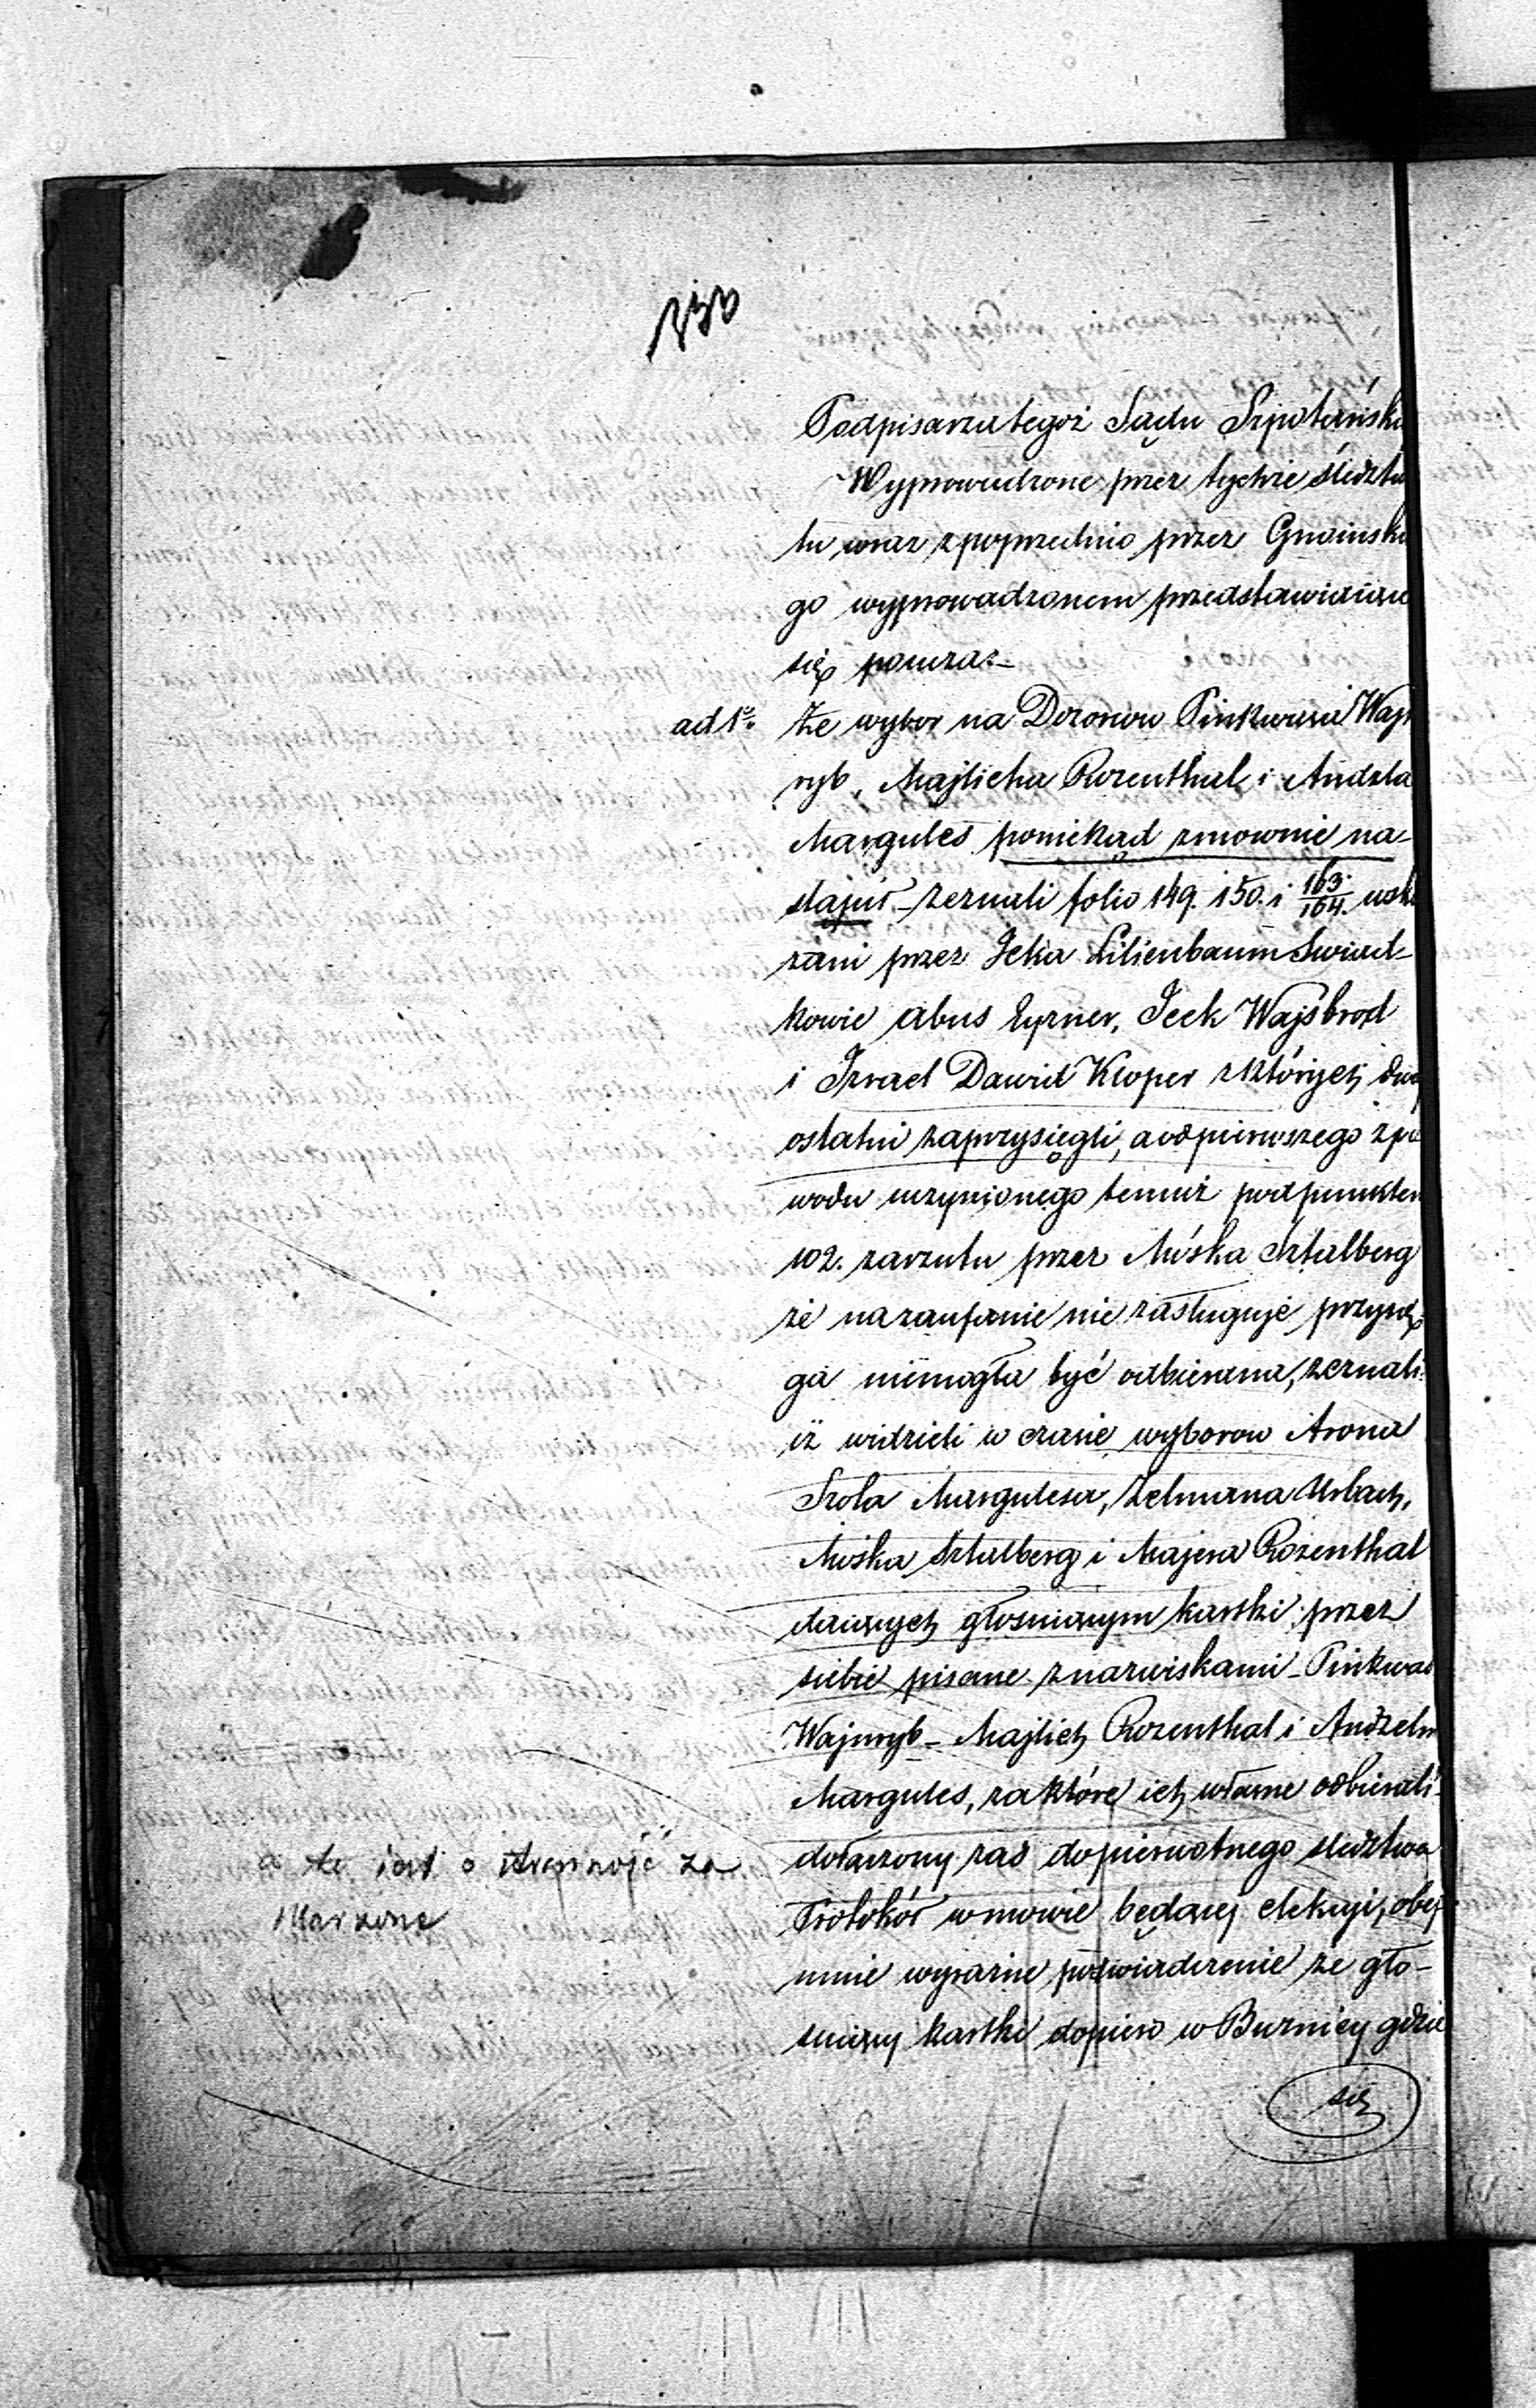 330
Podpisarza tegoż Sądu Szpotański
Wyprowadzone przez tychże śledztw
tu wraz z poprzednio przez Gnoińsk
go wyprowadzonem przedstawiaiąc
się
ad 1o
Że wybor na Dozorow Pinkwasa Wajn
ryb, Majlicha Rozenthal i Andzla
Margules poniekąd zmownie na-
stąpił – zeznali folio 149. 150. i 163/164. wska
zani przez Icka Lilienbaum Swiad-
kowie Abus Cyrner, Icek Wajsbrod
i Izrael Dawid Kloper z których dwa
ostatni zaprzysięgli, a od pierwszego z po
wodu uczynionego temuż pod punktem
102. zarzutu przez Mośka Sztalberg
że na zaufanie nie zasługuje przysię
ga niemogła być odbierana, zeznali
iż widzieli w czasie wyborow Arona
Srola Margulesa, Zelmana Urbach,
Mośka Sztalberg i Majera Rozenthal
daiących głosuiącym kartki przez
siebie pisane z nazwiskami – Pinkwas
Wajnryb – Majlich Rozenthal i Andzelm
Margules, za które ich własne odbierali
dołączony zas do pierwotnego sledztwa
Protokół w mowie będącej elekcyi, obej
muie wyraźne poświadczenie że gło-
suiący kartki dopiero w Bużnicy gdzie
się
a to iest o